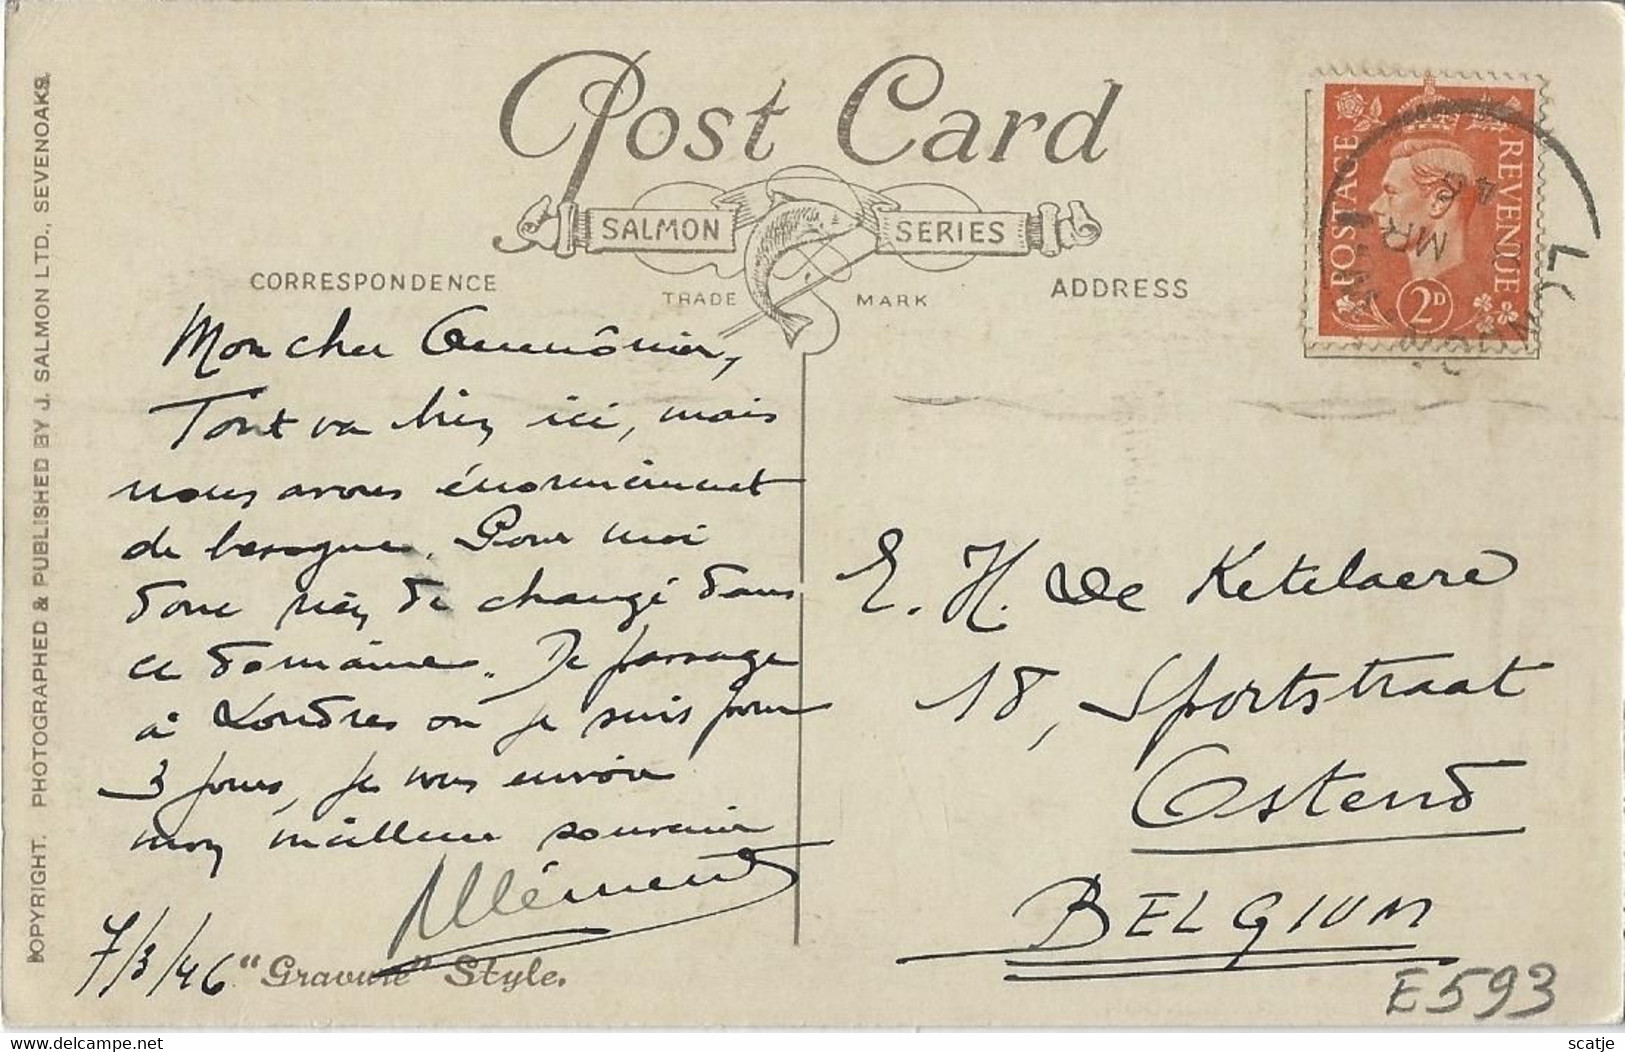 Post Card
SALMON SERIES
CORRESPONDENCE
TRADE MARK
ADDRESS
COPYRIGHT. PHOTOGRAPHED & PUBLISHED BY J. SALMON LTD., SEVENOAKS.
POSTAGE REVENUE
2D
MR
Mon cher Aumônier,
Tout va bien ici, mais
nous avons énormément
de besogne. Pour moi
donc rien de changé dans
ce domaine. De passage
à Londres où je suis pour
3 jours, je vous envoie
mon meilleur souvenir
7/3/46
"Gravure" Style.
E. H. De Ketelaere
18, Sportstraat
Ostend
BELGIUM
E593
delcampe.net
scatje